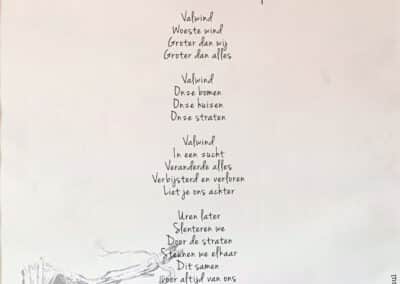 Valwind
Woeste wind
Groter dan wij
Groter dan alles
Valwind
Onze bomen
Onze huizen
Onze straten
Valwind
In een zucht
Veranderde alles
Verbijsterd en verloren
Liet je ons achter
Uren later
Slenteren we
Door de straten
Steunen we elkaar
Dit samen
Voor altijd van ons